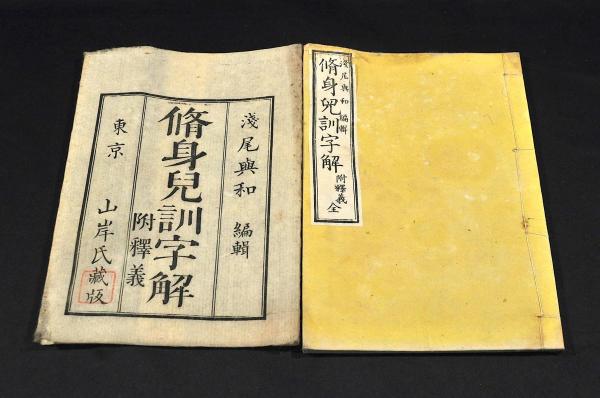 淺尾與和 編輯
脩身兒訓字解
附釋義
東京
山岸氏藏版
淺尾與和編輯
脩身兒訓字解
附釋義
全